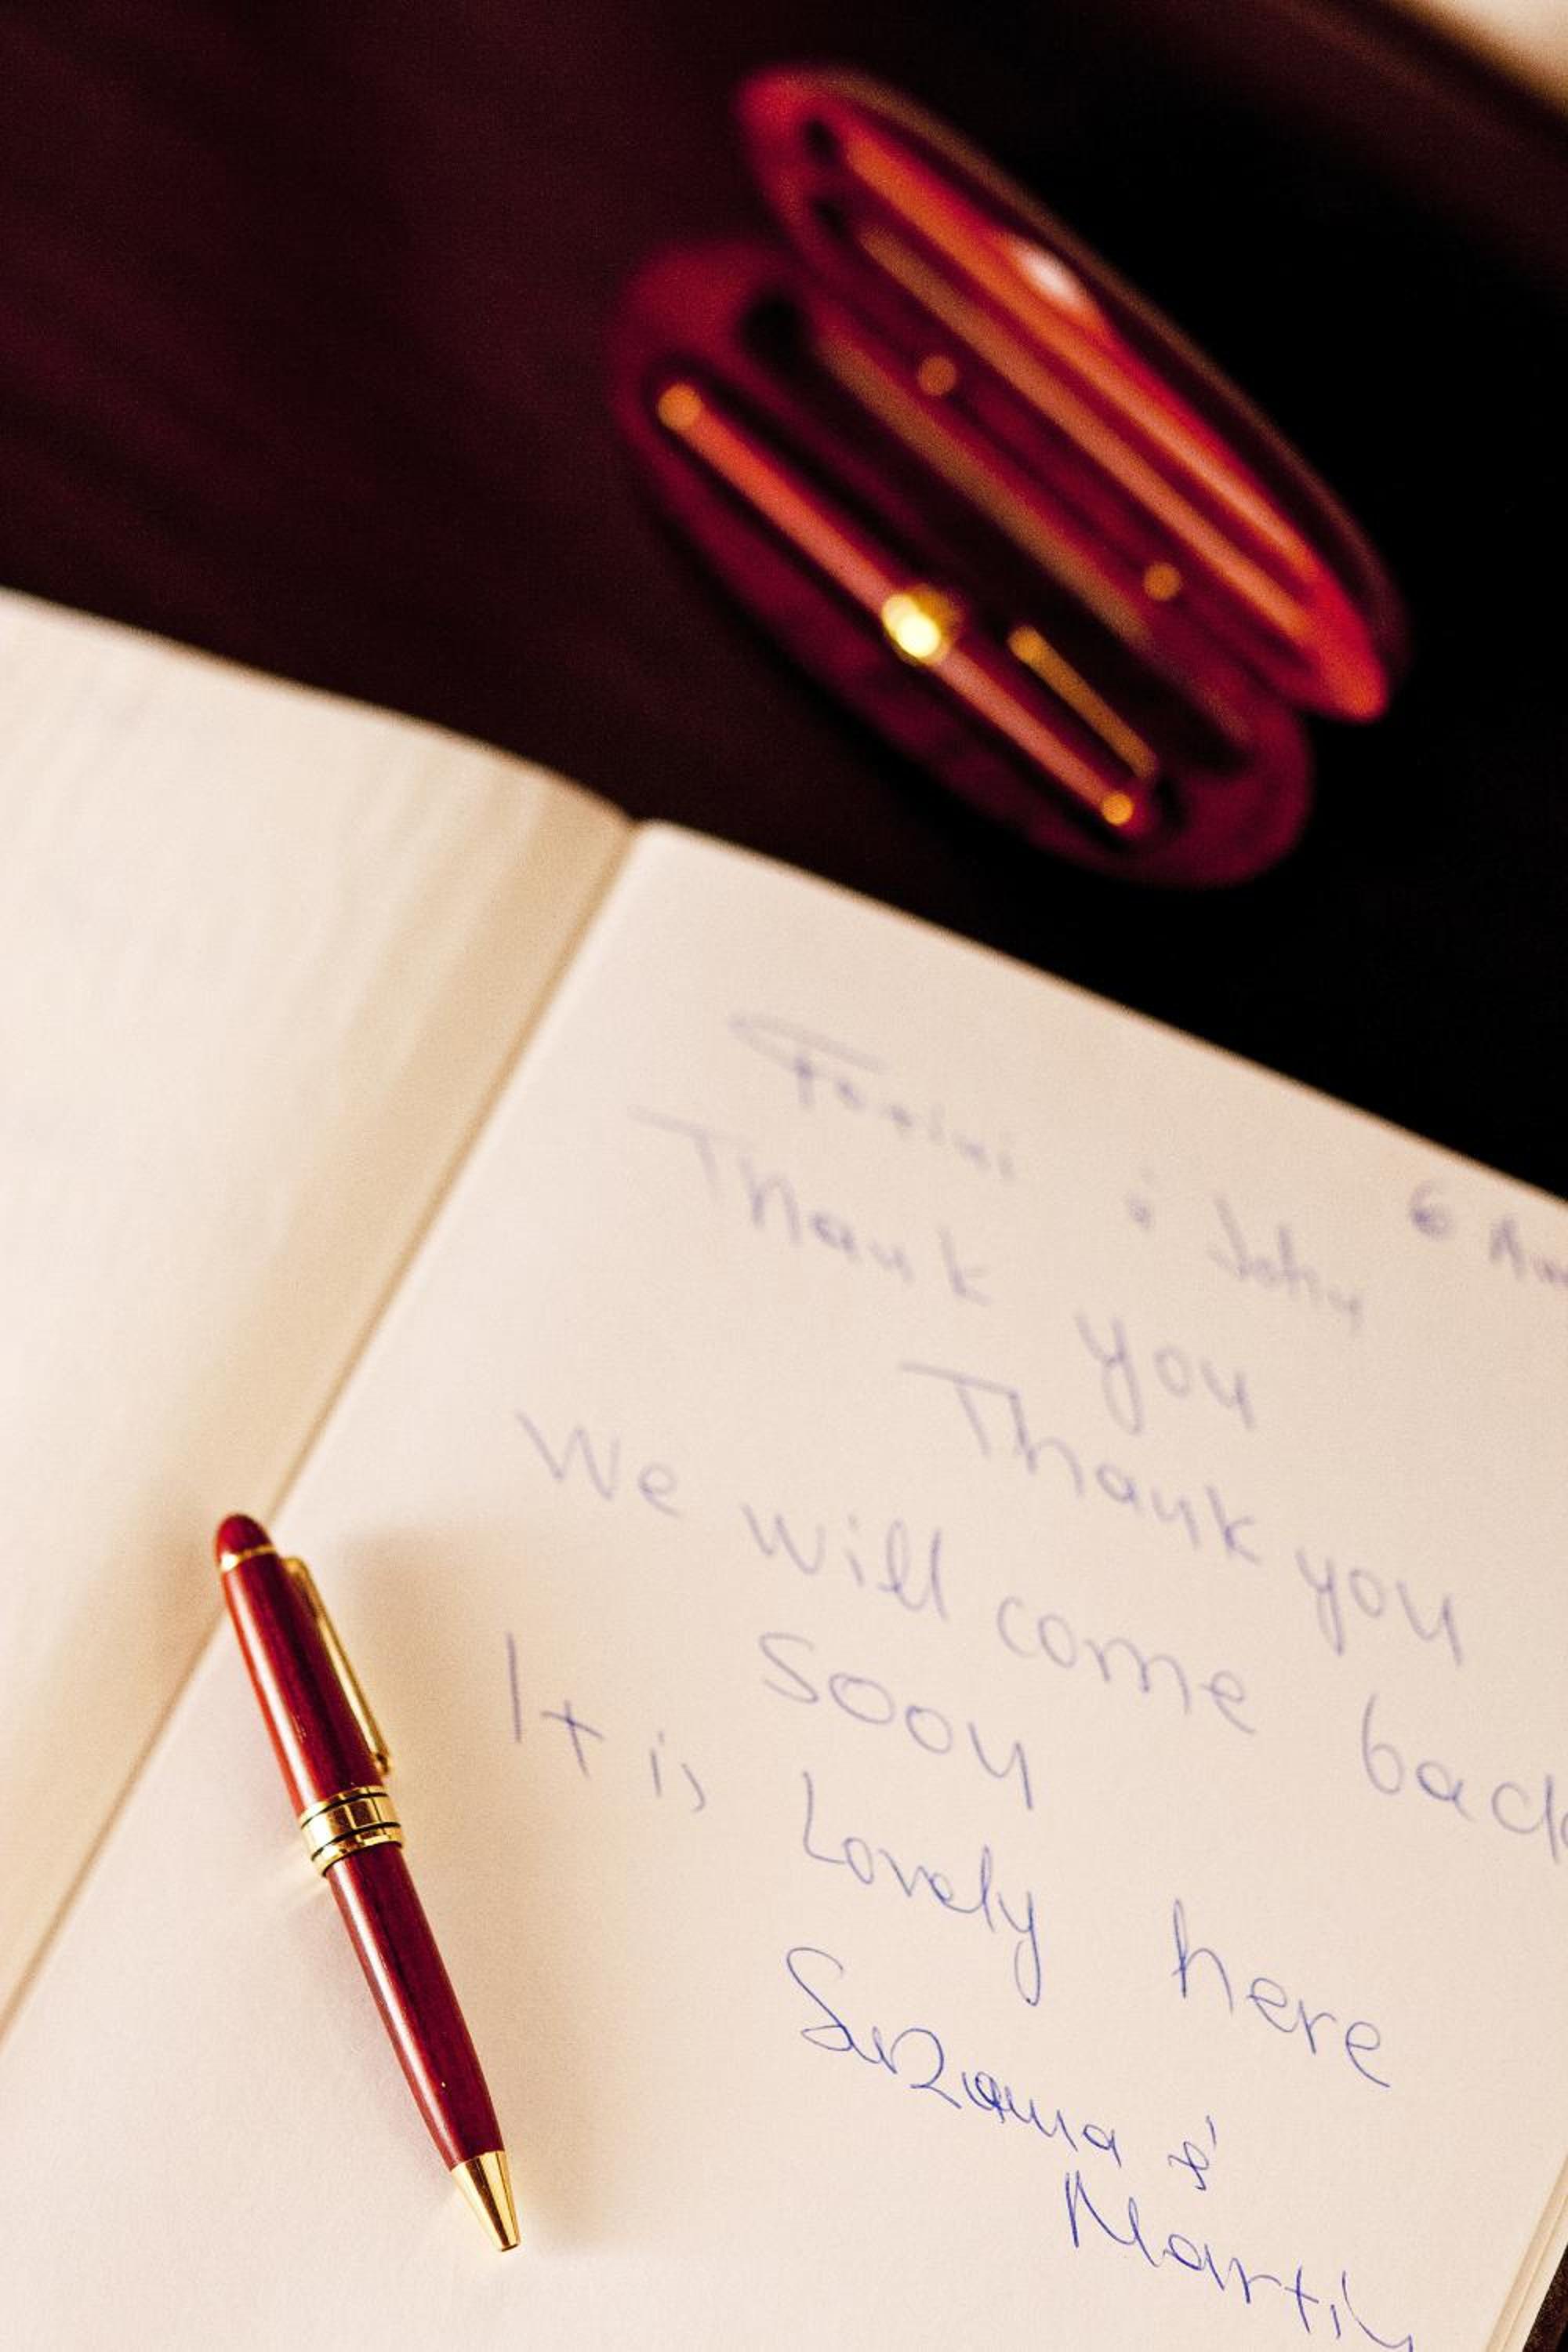 & John 6
Thank you
Thank you
We will come back
Soon
It is Lovely here
Suzana &
Martin